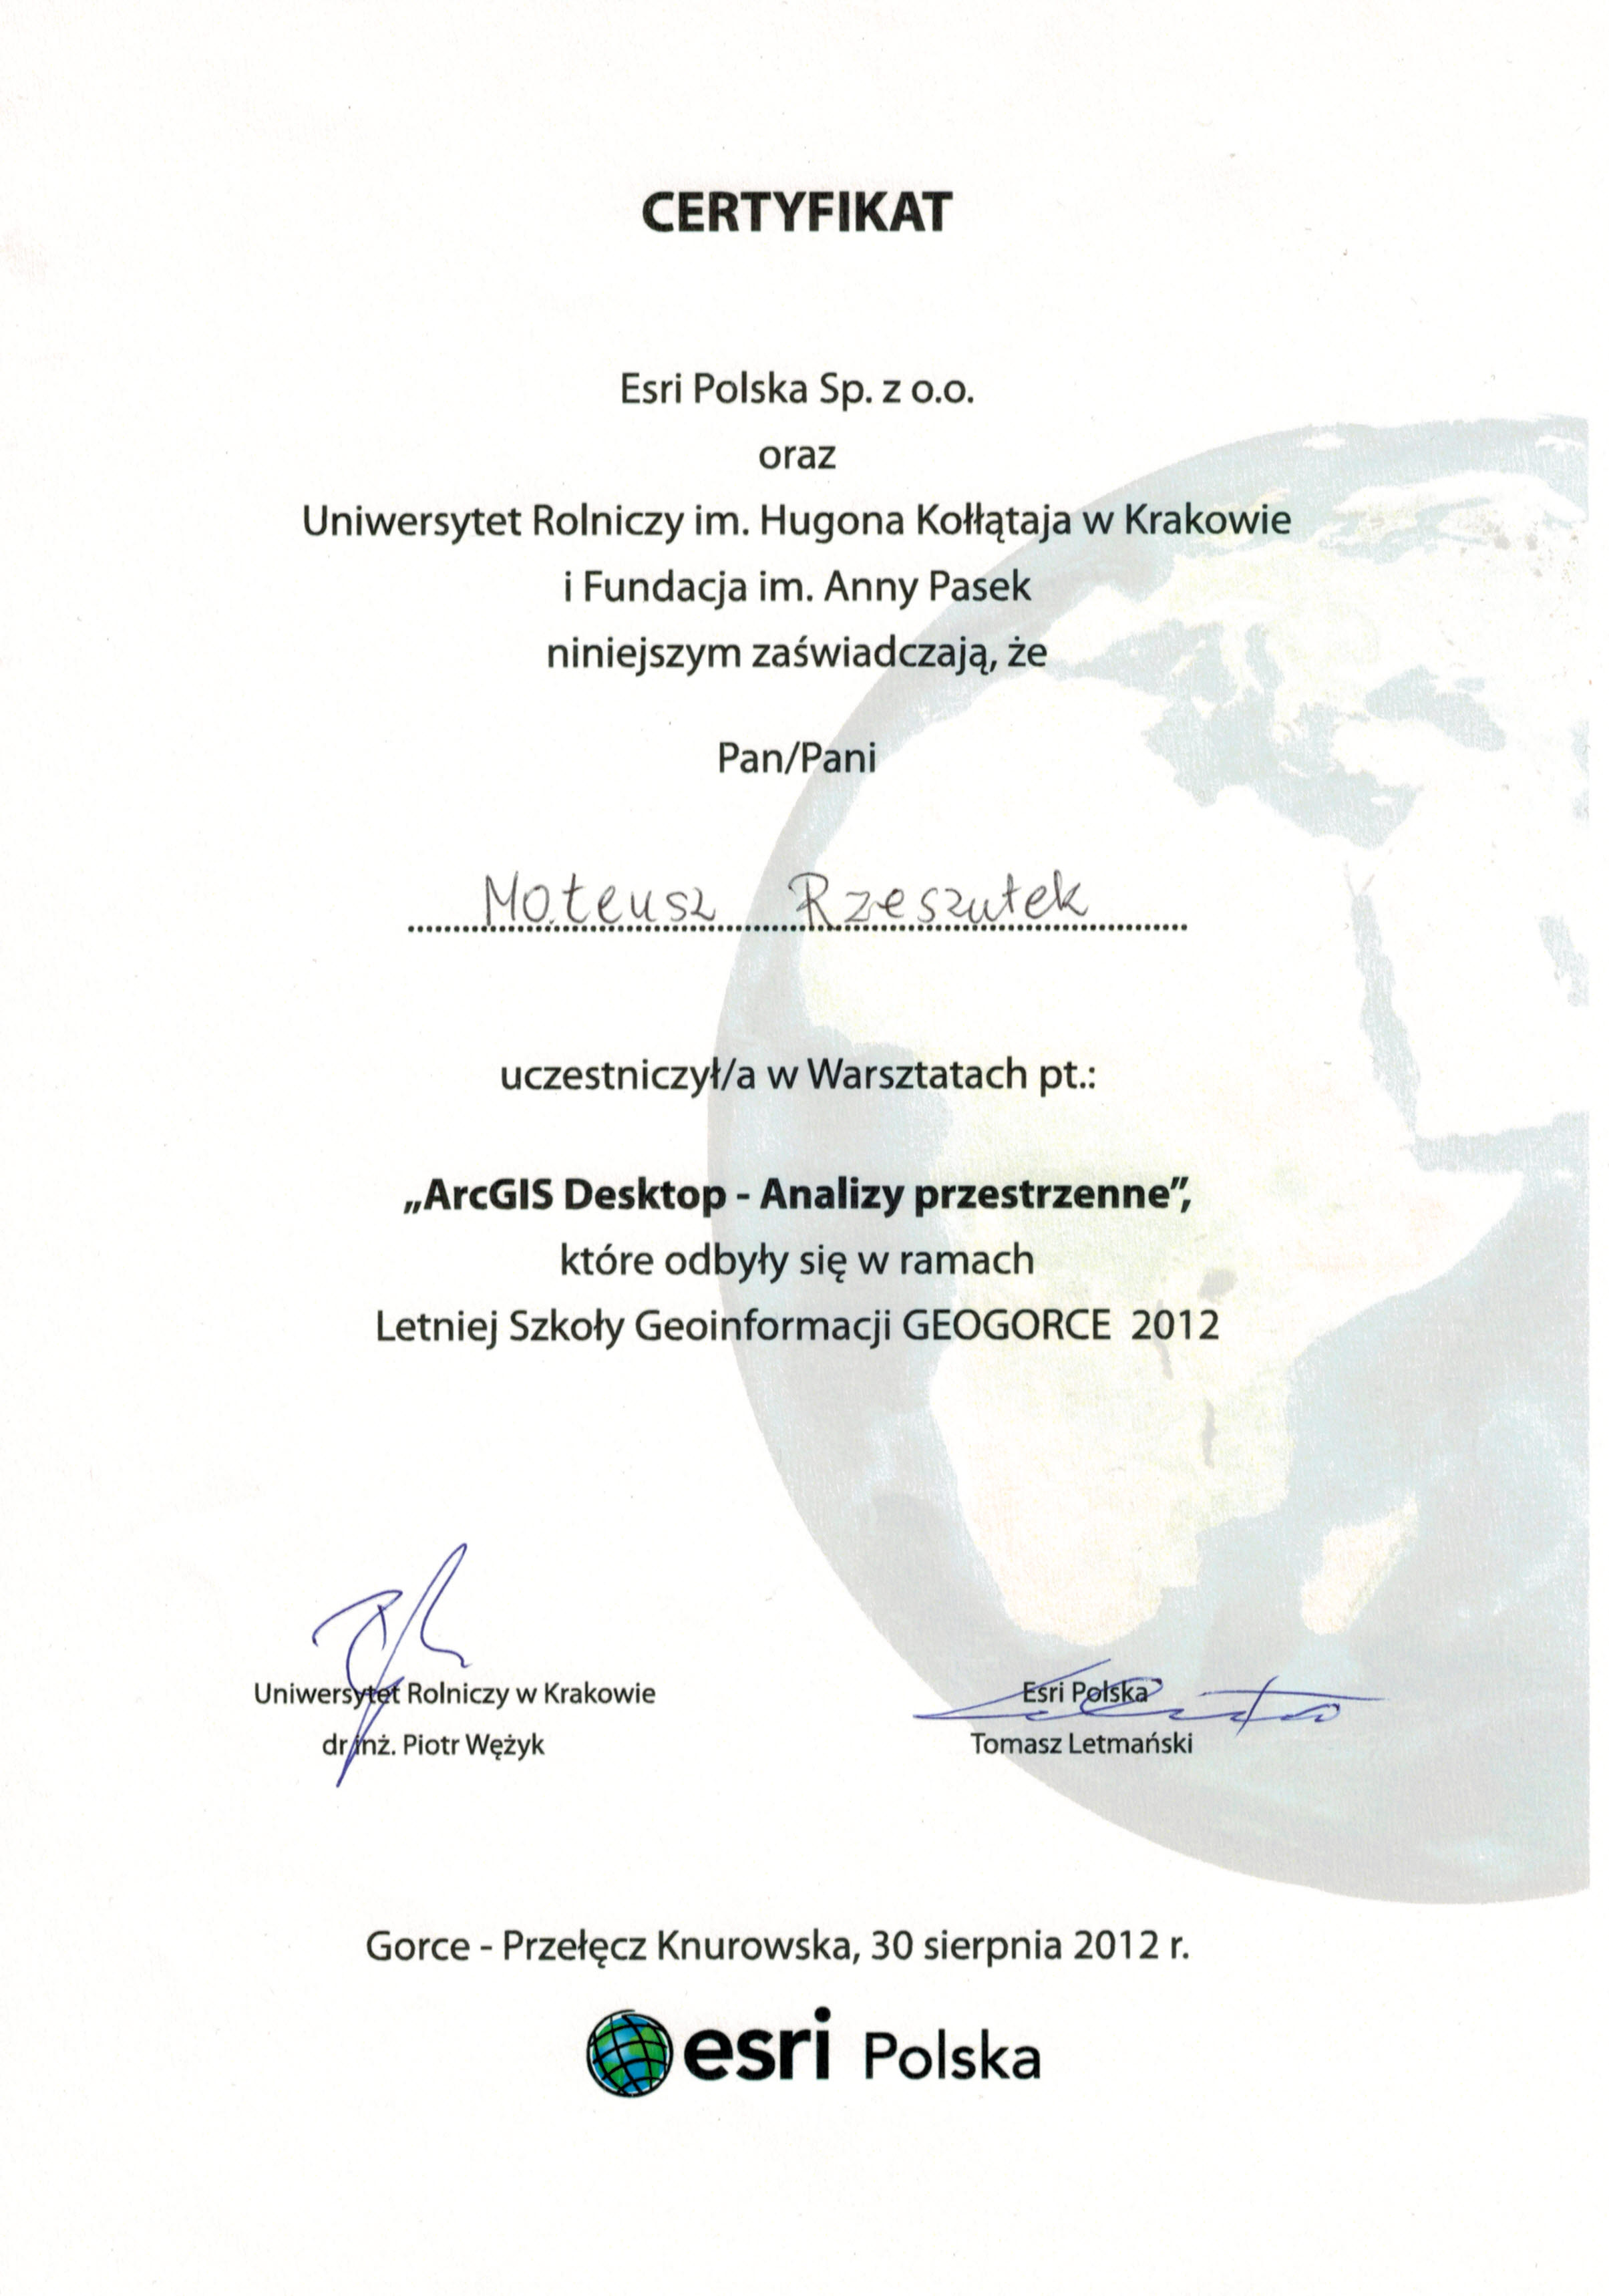 CERTYFIKAT
Esri Polska Sp. z o.o.
oraz
Uniwersytet Rolniczy im. Hugona Kołłątaja w Krakowie
i Fundacja im. Anny Pasek
niniejszym zaświadczają, że
Pan/Pani
Mateusz Rzeszutek
uczestniczył/a w Warsztatach pt.:
„ArcGIS Desktop - Analizy przestrzenne”,
które odbyły się w ramach
Letniej Szkoły Geoinformacji GEOGORCE 2012
Uniwersytet Rolniczy w Krakowie
dr inż. Piotr Wężyk
Esri Polska
Tomasz Letmański
Gorce - Przełęcz Knurowska, 30 sierpnia 2012 r.
esri Polska